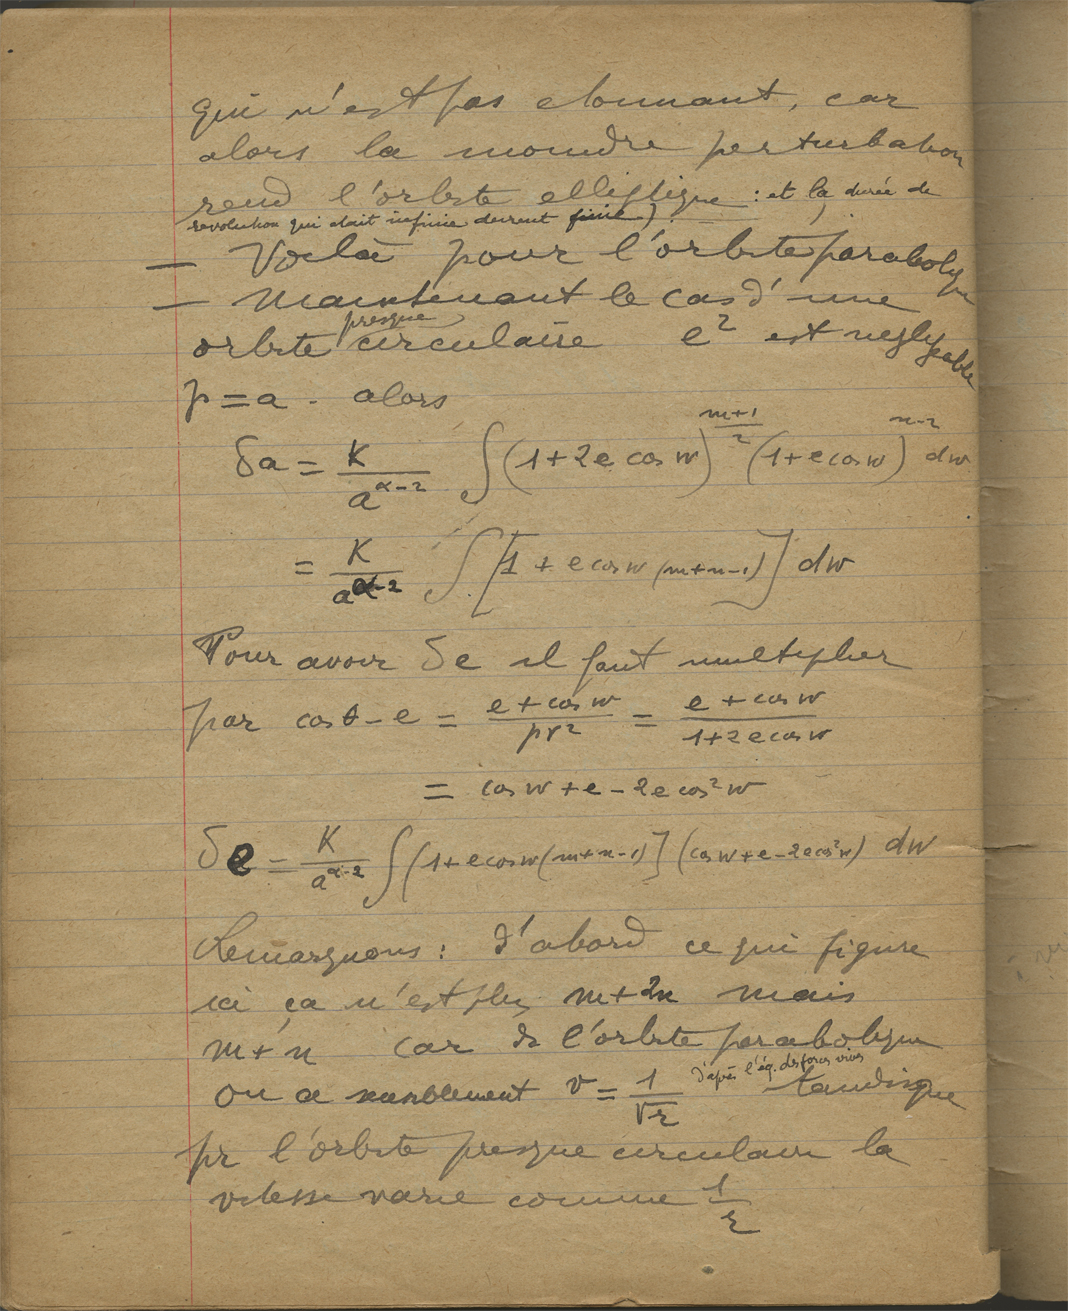 qui n'est pas etonnant, car
alors la moindre perturbation
rend l'orbite elliptique : et la durée de
revolution qui etait infinie devient finie)
— Voilà pour l'orbite parabolique
— Maintenant le cas d'une
orbite presque circulaire e² est negligeable
p = a - alors
δa = K/a^(α-2) ∫ (1+2e cos w)^((m+1)/2) (1+e cos w)^(n-2) dw
= K/a^(α-2) ∫ [1 + e cos w (m+n-1)] dw
Pour avoir δe il faut multiplier
par cos θ - e = (e + cos w)/(pv²) = (e + cos w)/(1+2e cos w)
= cos w + e - 2e cos² w
δe = K/a^(α-2) ∫ (1+e cos w (m+n-1)] (cos w + e - 2e cos² w) dw
Remarquons : d'abord ce qui figure
ici ça n'est plus m+2n mais
m+n car ds l'orbite parabolique
on a v = 1/√r d'après l'éq. des forces vives tandis que
pr l'orbite presque circulaire la
vitesse varie comme 1/r